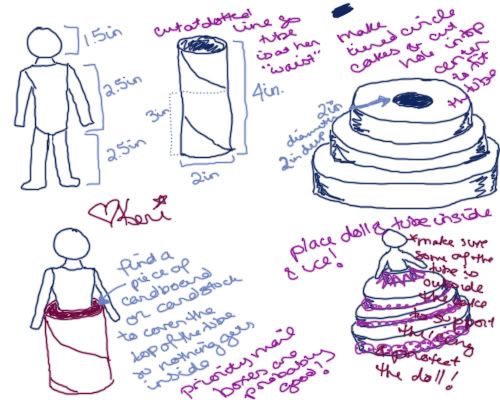 1.5in
2.5in
2.5in
cut at dotted
line so
tube
is at her
"waist"
3in
4in.
2in
make
tiered circle
cakes & cut
hole in top
center
to fit
the tube
2in
diameter
2in deep
♡Keri
find a
piece of
cardboard
or cardstock
to cover the
top of the tube
so nothing gets
inside
priority mail
boxes are
probably
good!
place doll & tube inside
& ice!
*make sure
some of the
tube is
outside
the cake
to support
the icing
& protect
the doll!